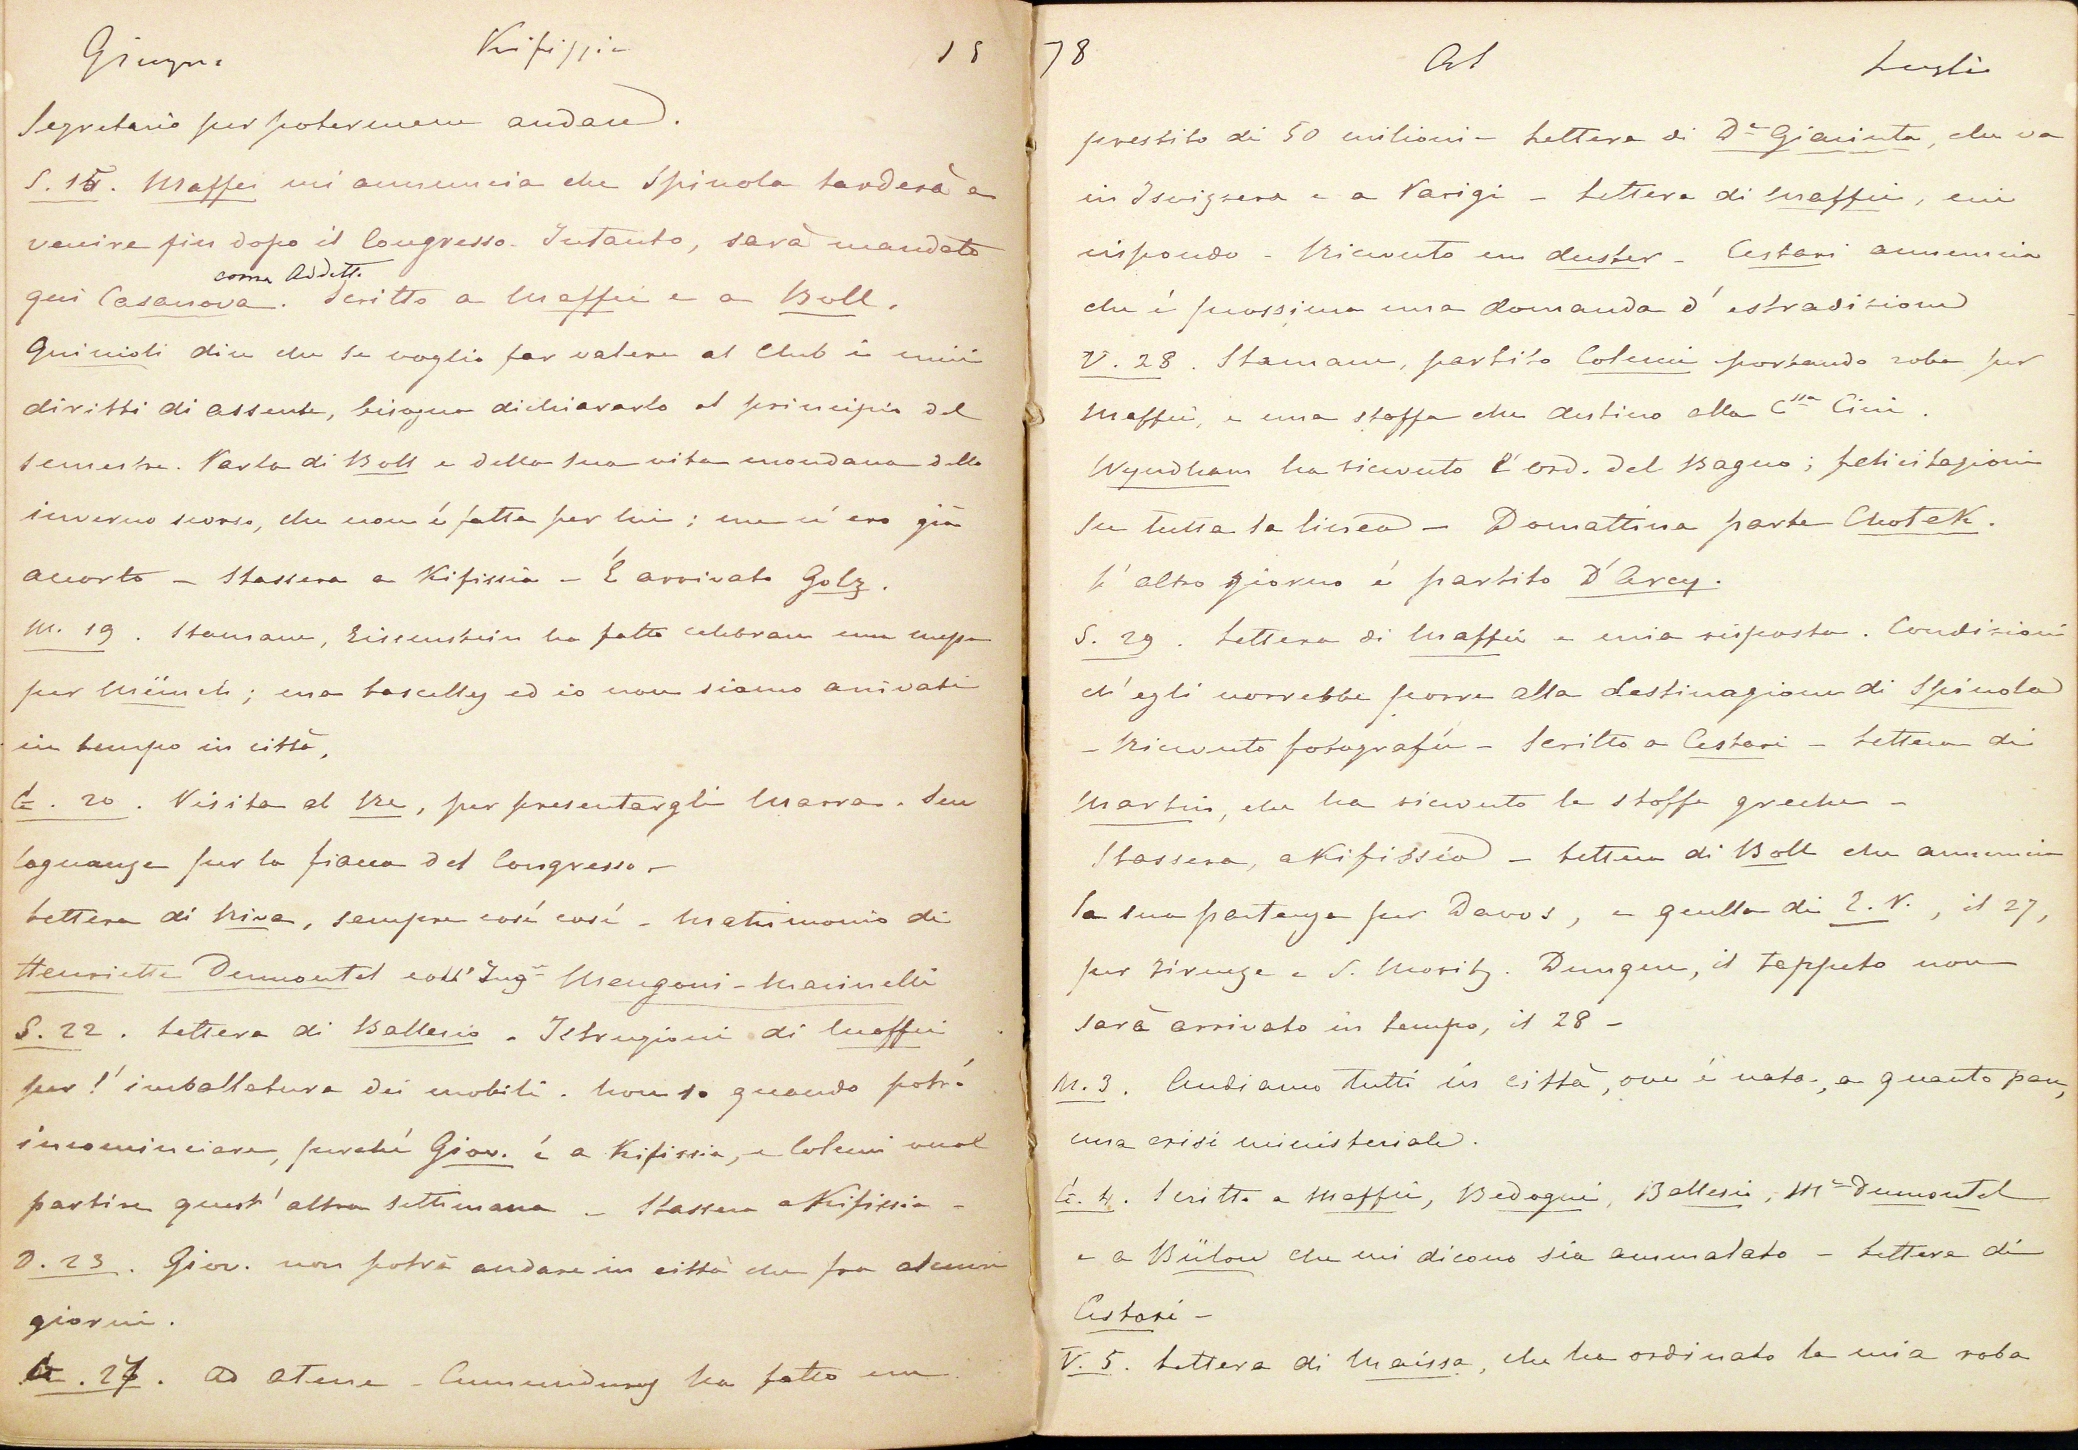 Giugno Kifissia 18
Segretario per potermene andare.
S. 15. Maffei mi annuncia che Spinola tarderà a
venire fin dopo il Congresso. Intanto, sarà mandato
come Addetto
qui Casanova. Scritto a Maffei e a Boll.
dice che se voglio far valere al Club i miei
diritti di assente, bisogna dichiararlo al principio del
semestre. Parla di Boll e della sua vita mondana dello
inverno scorso, che non é fatta per lui; me n'ero già
accorto – Stassera a Kifissia – É arrivato Golz.
M. 19. Stamane, Eissenstein ha fatto celebrare una messa
per Münch; ma Lascelles ed io non siamo arrivati
in tempo in città.
G. 20. Visita al Re, per presentargli Marra. Sue
lagnanze per la fiacca del Congresso –
Lettera di Riva, sempre cosí cosí – Matrimonio di
Henriette Dumontel coll'Ingre Mengoni-Marinelli
S. 22. Lettera di Ballesio – Istruzioni di Maffei
per l'imballatura dei mobili. Non so quando potrò
incominciare, perché Giov. é a Kifissia, e Colucci vuol
partire quest'altra settimana – Stassera a Kifissia –
D. 23. Giov. non potrà andare in città che fra alcuni
giorni.
G. 27. Ad Atene – ha fatto un
78 Al Luglio
prestito di 50 milioni – Lettera di Da Giacinta, che va
in Isvizzera e a Parigi – Lettera di Maffei, cui
rispondo – Ricevuto un duster – Cestari annuncia
che é prossima una domanda d'estradizione
V. 28. Stamane, partito Colucci portando roba per
Maffei, e una stoffa che destino alla Cssa Cini.
Wyndham ha ricevuto l'ord. del Bagno; felicitazioni
su tutta la linea – Domattina parte Chotek.
L'altro giorno é partito D'Arcy.
S. 29. Lettera di Maffei e mia risposta. Condizioni
ch'egli vorrebbe porre alla destinazione di Spinola
– Ricevuto fotografie – Scritto a Cestari – Lettera di
Martin, che ha ricevuto le stoffe greche –
Stassera, a Kifissia – Lettera di Boll che annuncia
la sua partenza per Davos, e quella di E. V., il 27,
per Firenze e S. Moritz. Dunque, il tappeto non
sarà arrivato in tempo, il 28 –
M. 3. Andiamo tutti in città, ove é nata, a quanto pare,
una crisi ministeriale.
G. 4. Scritto a Maffei, Bedogni, Ballesio, Me Dumontel
e a Bülow che mi dicono sia ammalato – Lettera di
Cestari –
V. 5. Lettera di Maissa, che ha ordinato la mia roba